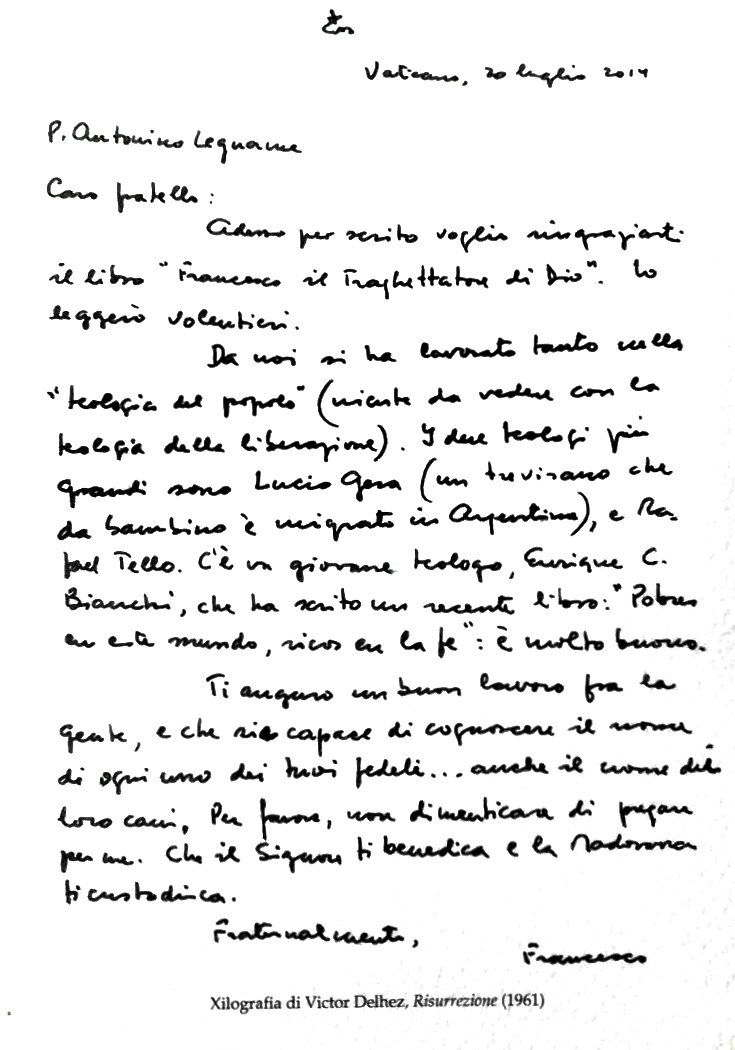 Vaticano, 20 luglio 2014
P. Antonino Legname
Caro fratello:
Adesso per scrito voglio ringraziarti
il libro "Francesco il Traghettatore di Dio". Lo
leggerò volentieri.
Da noi si ha lavorato tanto nella
"teologia del popolo" (niente da vedere con la
teologia della liberazione). I due teologi più
grandi sono Lucio Gera (un trevisano che
da bambino è emigrato in Argentina), e Ra-
fael Tello. C'è un giovane teologo, Enrique C.
Bianchi, che ha scrito un recente libro: "Pobres
en este mundo, ricos en la fe": è molto buono.
Ti auguro un buon lavoro fra la
gente, e che sia capace di cognoscere il nome
di ogni uno dei tuoi fedeli... anche il nome dei
loro cani. Per favore, non dimenticare di pregare
per me. Che il Signore ti benedica e la Madonna
ti custodisca.
Fraternalmente,
Francesco
Xilografia di Victor Delhez, Risurrezione (1961)